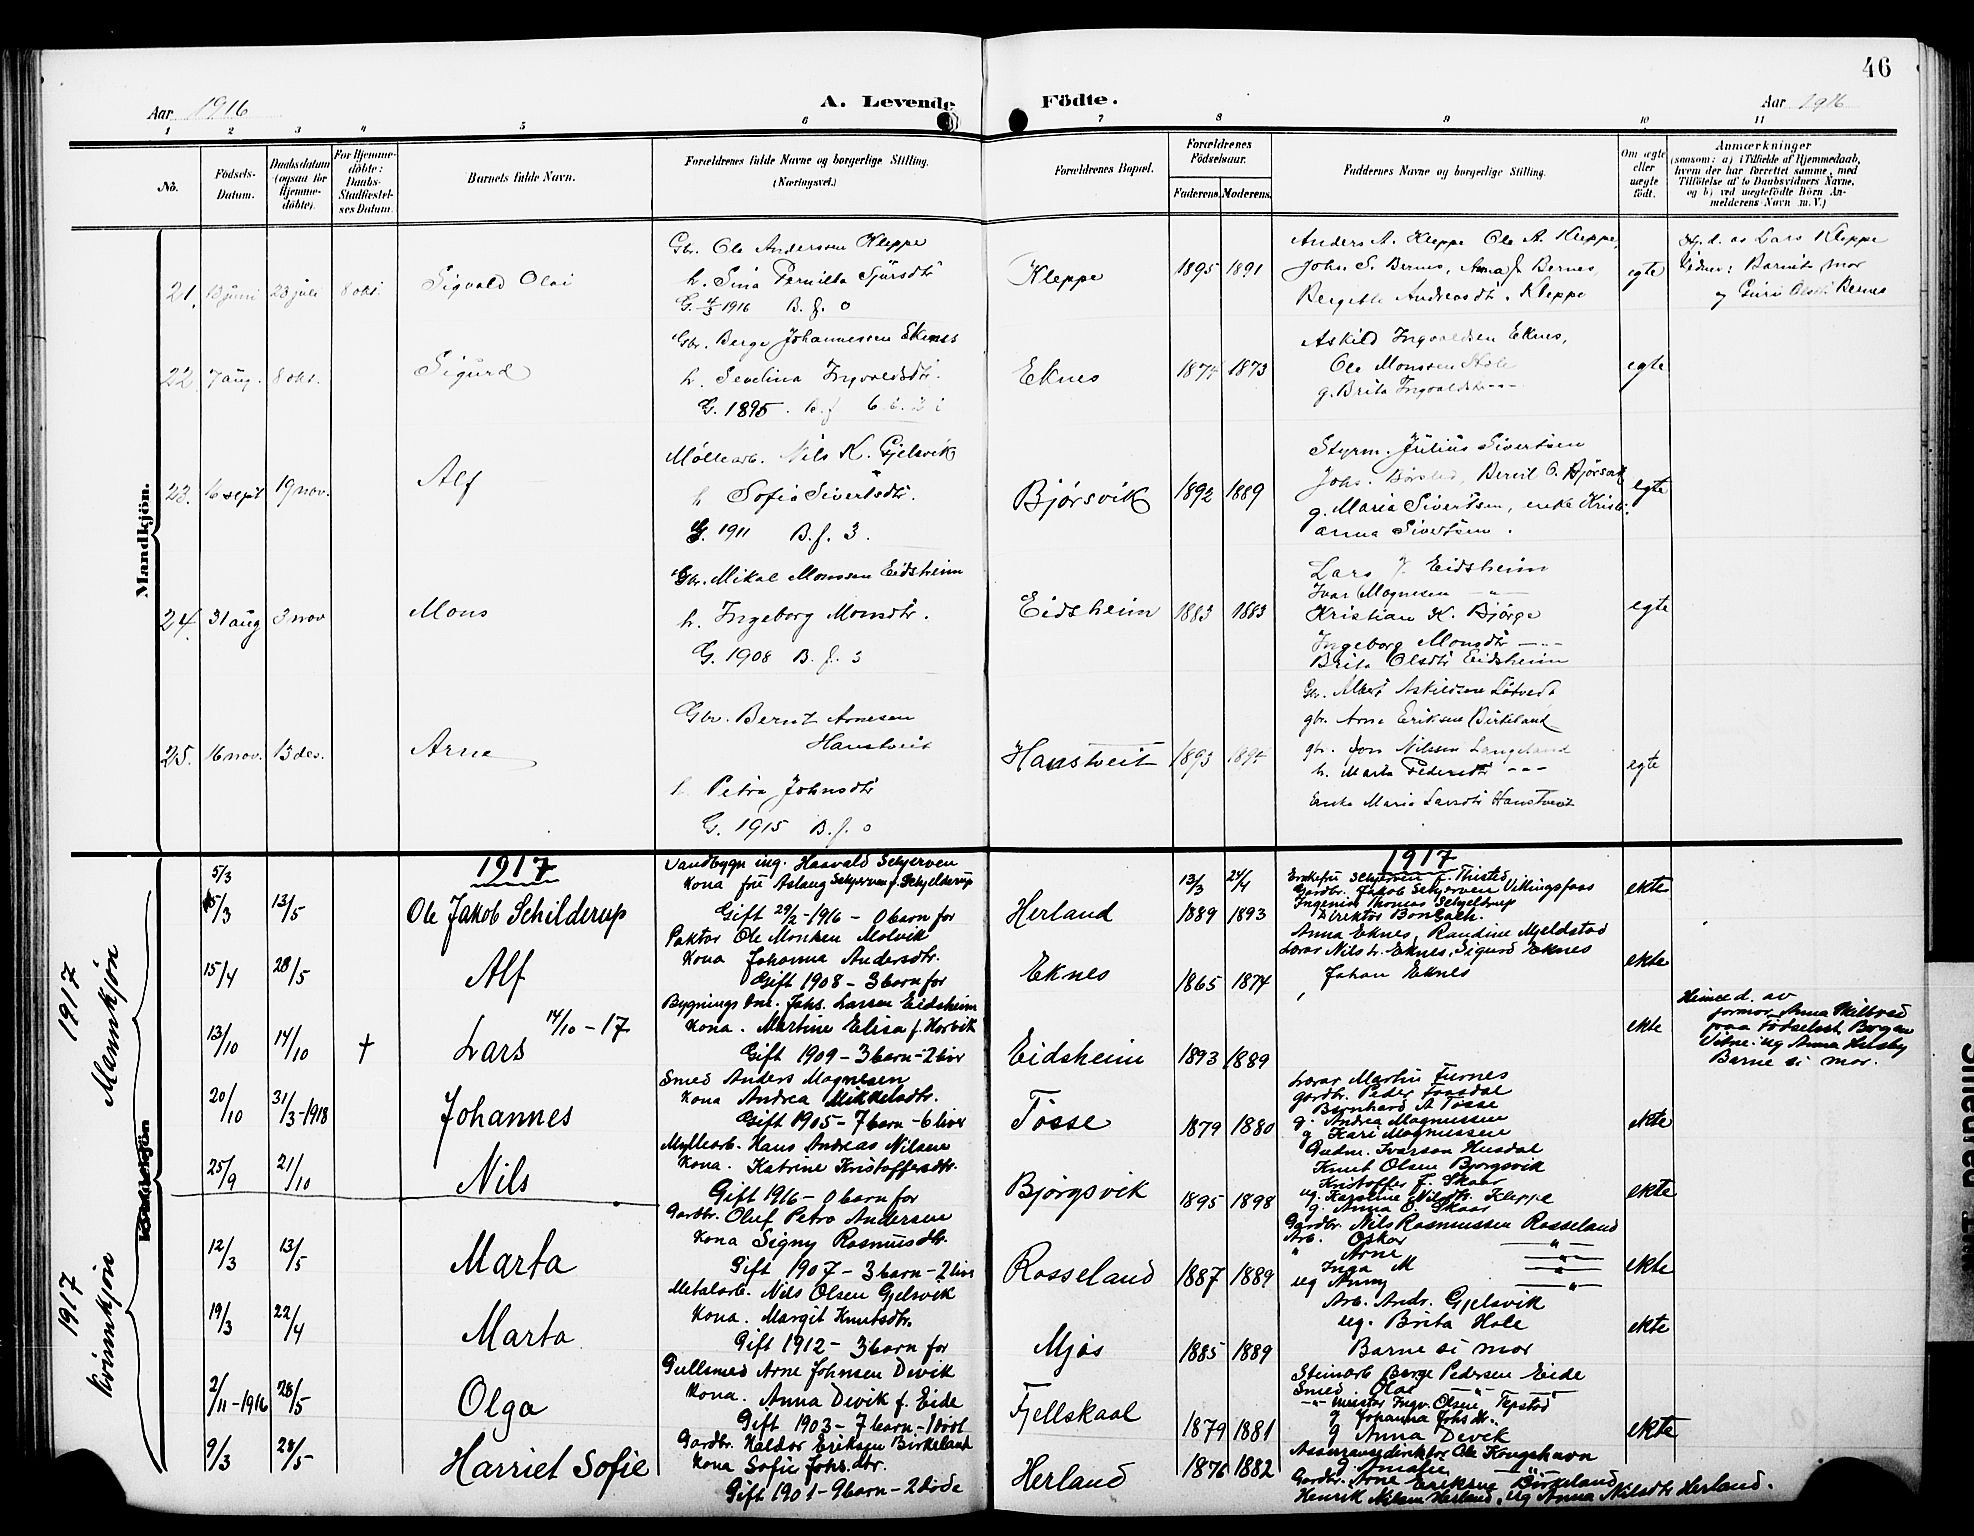 46
Aar 1916
A. Levende Födte.
Aar 1916
1 2 3 4 5 6 7 8 9 10 11
No.
Födsels-Datum.
Daabsdatum (ogsaa for Hjemme-döbte).
For Hjemme-döbte: Daabs-Stadfæstel-ses Datum.
Barnets fulde Navn.
Forældrenes fulde Navne og borgerlige Stilling.
(Næringsvei.)
Forældrenes Bopæl.
Forældrenes Födselsaar.
Faderens. Moderens.
Faddernes Navne og borgerlige Stilling.
Om ægte eller uægte födt.
Anmærkninger
(saasom: a) i Tilfælde af Hjemmedaab,
hvem der har forrettet samme, med
Tilföielse af to Daabsvidners Navne,
og b) ved uægtefödte Börn An-
melderens Navn m. V.)
Mandkjön.
21. 13 juni 23 juli 8 okt. Sigvald Olai
Gbr. Ole Anderssen Kleppe
h. Sina Pernilla Sjursdtr
G. 4/3 1916 B. f. 0
Kleppe 1895 1891
Anders A. Kleppe Ole A. Kleppe,
John S. Bernes, Anna J. Bernes,
Bergitte Andreasdtr. Kleppe
egte
Hj. d. av Lars Kleppe
Vidner: Barnets mor
og Guri Olsdtr Bernes
22. 7 aug. 8 okt. Sigurd
Gbr. Berge Johannessen Eknes
h. Sevelina Ingvaldsdtr.
G. 1895. B. f.
Eknes 1874 1873
Askild Ingvaldsen Eknes,
Ole Monssen Hole
g. Brita Ingvaldsdtr -"-
egte
23. 16 sept 19 nov. Alf
Møllearb. Nils K. Gjelsvik
h Sofie Sivertsdtr.
G. 1911 B. f. 3.
Bjørsvik 1892 1889
Styrm. Julius Sivertsen
Johs. Børsted, Beril O. Bjørsvik
g. Maria Sivertsen, enke Krist-
anna Sivertsen.
egte
24. 31 aug 3 nov Mons
Gbr. Mikal Monssen Eidsheim
h. Ingeborg Monsdtr.
G. 1908 B. f. 3
Eidsheim 1883 1883
Lars J. Eidsheim
Ivar Magnesen -"-
Kristian K. Bjørge
Ingeborg Monsdtr -"-
Brita Olsdtr Eidsheim
egte
25. 16 nov. 13 des. Arne
Gbr. Bernt Arnesen
Hanstveit
h Petra Johnsdtr
G. 1915 B. f. 0
Hanstveit 1893 1894
Gbr. Albert Askildsen Løtveit
gbr. Arne Eriksen Birkeland
gbr. Jon Nilssen Langeland
h. Marta Pedersdtr -"-
Enke Maria Larsdtr Hanstveit
egte
1917 1917
1917 Mannkjøn
5/3
15/3 13/5 Ole Jakob Schilderup
Vandbygn ing. Haavald Schjerven
Kona fru Aslaug Schjerven f. Schjelderup
Gift 29/2-1916 - 0 barn for
Herland 13/3 1889 24/4 1893
Enkefru Schjerven f. Thisted
Gardbr. Jakob Schjerven Vikingsfoss
Ingeniør Thomas Schjeldrup
Direktør Bongach.
ekte
15/4 28/5 Alf
Faktor Ole Monsen Molvik
Kona Johanna Andersdtr.
Gift 1908 - 3 barn for
Eknes 1865 1874
Anna Eknes, Randine Mjeldstad
Lærar Nils tr. Eknes, Sigurd Eknes
Johan Eknes
ekte
13/10 14/10 † Lars 14/10-17
Bygnings sne. Johs. Larsen Eidsheim
Kona. Martine Elisa f. Horvik
Gift 1909 - 3 barn - 2 liv
Eidsheim 1893 1889
ekte
Heimed. av
formor Anna Miltved
paa Fødselsst. Bergen
Vitne: ug Anna Husby
Barne si mor.
20/10 31/3-1918 Johannes
Smed Anders Magnesen
Kona Andrea Mikkelsdtr.
Gift 1905 - 7 barn - 6 liver
Tøsse 1879 1880
Lærar Martin Furnes
gardbr. Peder Fossdal
Bernhard A Tøsse
g. Andrea Magnussen
g Kari Magnussen
ekte
25/9 21/10 Nils
Myllearb. Hans Andreas Nilsen
Kona. Katrine Kristoffersdtr.
Gift 1916 - 0 barn for
Bjørgsvik 1895 1898
Gudm. Ivarson Husdal
Knut Olsen Bjørgsvik
Kristoffer F. Skaar
ug. Karoline Nilsdtr. Kleppe
g. Anna O. Skaar
ekte
1917 Kvinnkjøn
12/3 13/5 Marta
Gardbr. Oluf Petro Andersen
Kona Signy Rasmusdtr.
Gift 1907 - 3 barn - 2 liv
Rosseland 1887 1889
Gardbr. Nils Rasmussen Rosseland
Arb. Oskar -"-
" Arne -"-
Inga M -"-
ug Anny -"-
ekte
19/3 22/4 Marta
Metalarb. Nils Olsen Gjelsvik
Kona. Margit Knutsdtr.
Gift 1912 - 3 barn for
Mjøs 1885 1889
Arb. Andr. Gjelsvik
ug. Brita Hole
Barne si mor
ekte
2/11-1916 28/5 Olga
Gullsmed Arne Johnsen Devik
Kona. Anna Devik f. Eide
Gift 1903 - 7 barn - 1 død
Fjellskaal 1879 1881
Steinarb Berge Pedersen Eide
Smed Olai -"-
-"- meistar Ingv. Olsen Tepstad
g Johanna Johsdtr.
g Anna Devik
ekte
9/3 28/5 Harriet Sofie
Gardbr. Haldor Eriksen Birkeland
Kona Sofie Johs.dtr.
Gift 1901 - 9 barn - 2 døde
Herland 1876 1882
Assuransedirektør Ole Kongshavn
g Amalie -"-
Gardbr. Arne Eriksen Birkeland
Henrik Nilsen Herland, ug Anna Nilsdtr Herland.